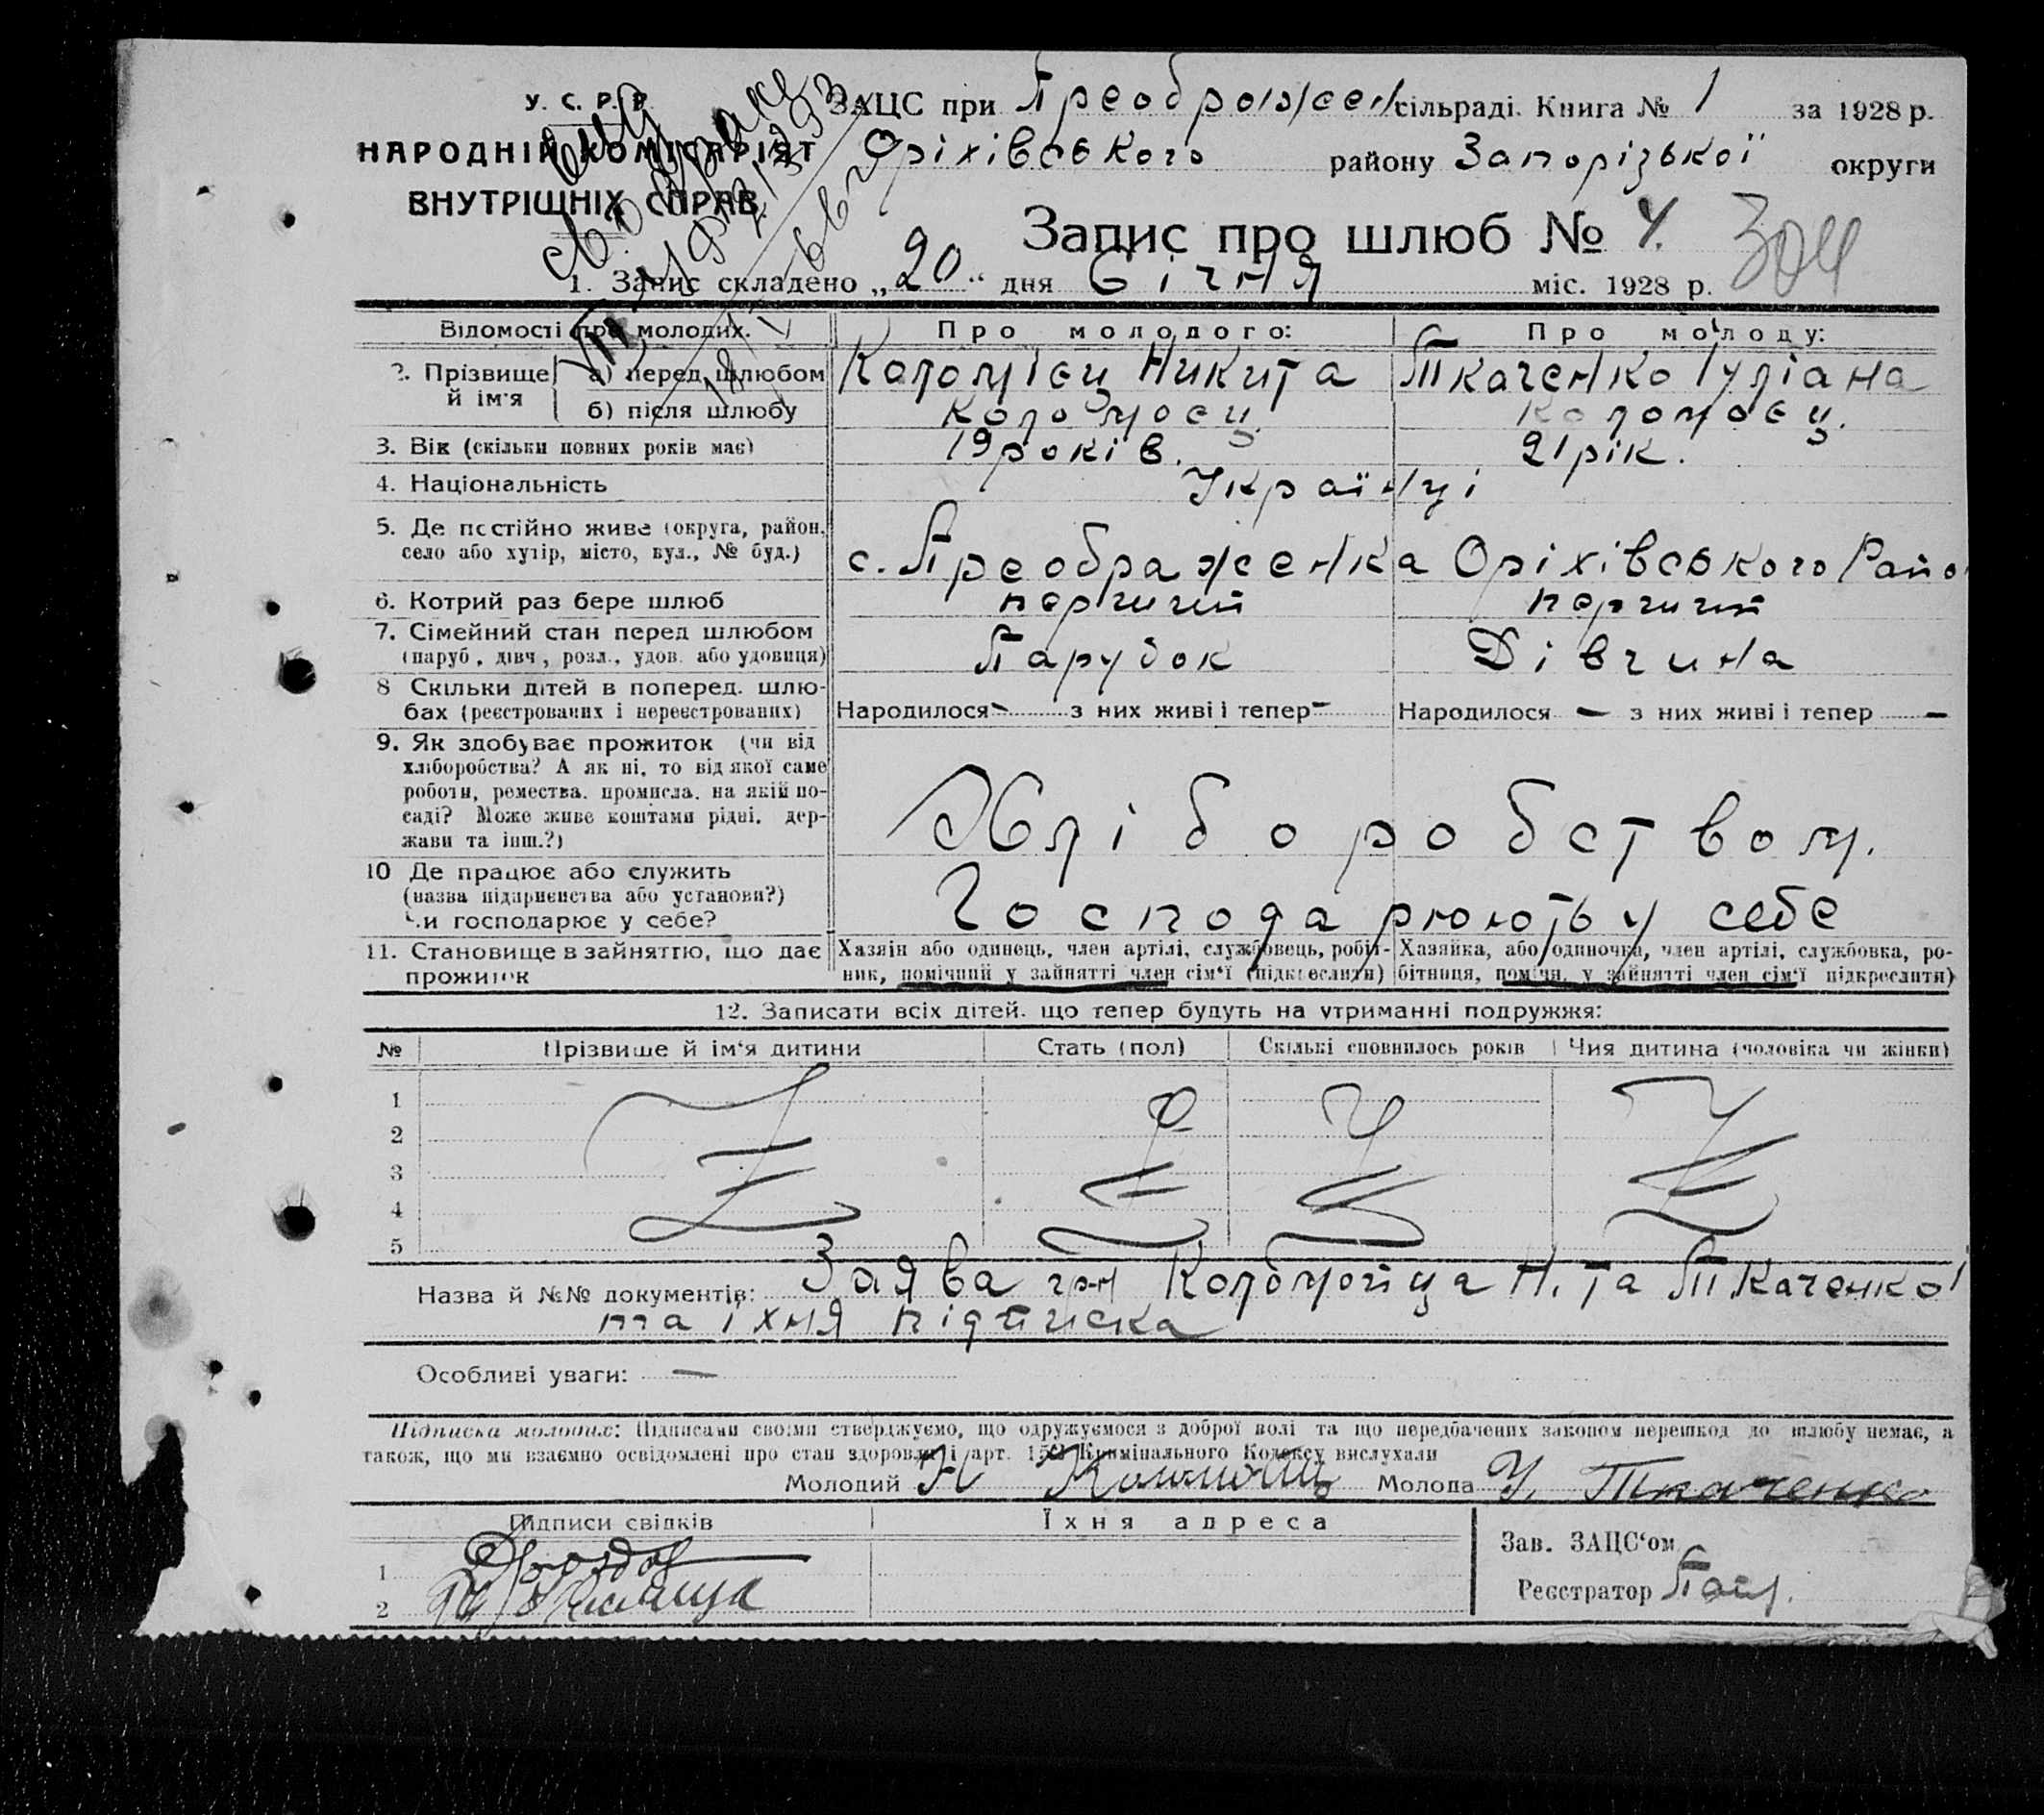 У. С. Р. Р.
НАРОДНІЙ КОМІСАРІЯТ
ВНУТРІШНІХ СПРАВ
ЗАЦС при Преображен сільраді. Книга № 1 за 1928 р.
Оріхівського району Запорізької округи
Запис про шлюб № 4.
304
1. Запис складено „20“ дня Січня міс. 1928 р.
Відомості про молодих. Про молодого: Про молоду:
2. Прізвище й ім'я а) перед шлюбом Коломієц Никита Ткаченко Іуліана
б) після шлюбу Коломоєц. Коломоєц.
3. Вік (скільки повних років має) 19 років. 21 рік.
4. Національність Українці
5. Де постійно живе (округа, район, село або хутір, місто, вул., № буд.) с. Преображенка Оріхівського Райо
6. Котрий раз бере шлюб перший перший
7. Сімейний стан перед шлюбом (паруб., дівч., розл., удов. або удовиця) Парубок Дівчина
8 Скільки дітей в поперед. шлюбах (реєстрованих і нереєстрованих) Народилося — з них живі і тепер — Народилося — з них живі і тепер —
9. Як здобуває прожиток (чи від
хліборобства? А як ні, то від якої саме
роботи, ремества, промисла, на якій по-
саді? Може живе коштами рідні, дер-
жави та інш.?) Хліборобством.
10 Де працює або служить
(назва підприємства або установи?)
Чи господарює у себе? Господарюють у себе
11. Становище в зайняттю, що дає прожиток
Хазяїн або одинець, член артілі, службовець, робіт-
ник, помічний у зайнятті член сім'ї (підкреслити)
Хазяйка, або одиночка, член артілі, службовка, ро-
бітниця, помічн. у зайнятті член сім'ї підкреслити)
12. Записати всіх дітей, що тепер будуть на утриманні подружжя:
№ Прізвище й ім'я дитини Стать (пол) Скількі сповнилось років Чия дитина (чоловіка чи жінки)
1
2
3
4
5
Назва й №№ документів: Заява гр-н Коломойца Н. та Ткаченкої
та їхня підписка
Особливі уваги: —
Підписка молодих: Підписами своїми стверджуємо, що одружуємося з доброї волі та що передбачених законом перешкод до шлюбу немає, а
також, що ми взаємно освідомлені про стан здоровля і арт. Кримінального Кодексу вислухали
Молодий Н Коломоєц Молода У. Ткаченко
Підписи свідків Їхня адреса
1 Дроздов
2
Зав. ЗАЦС'ом
Реєстратор